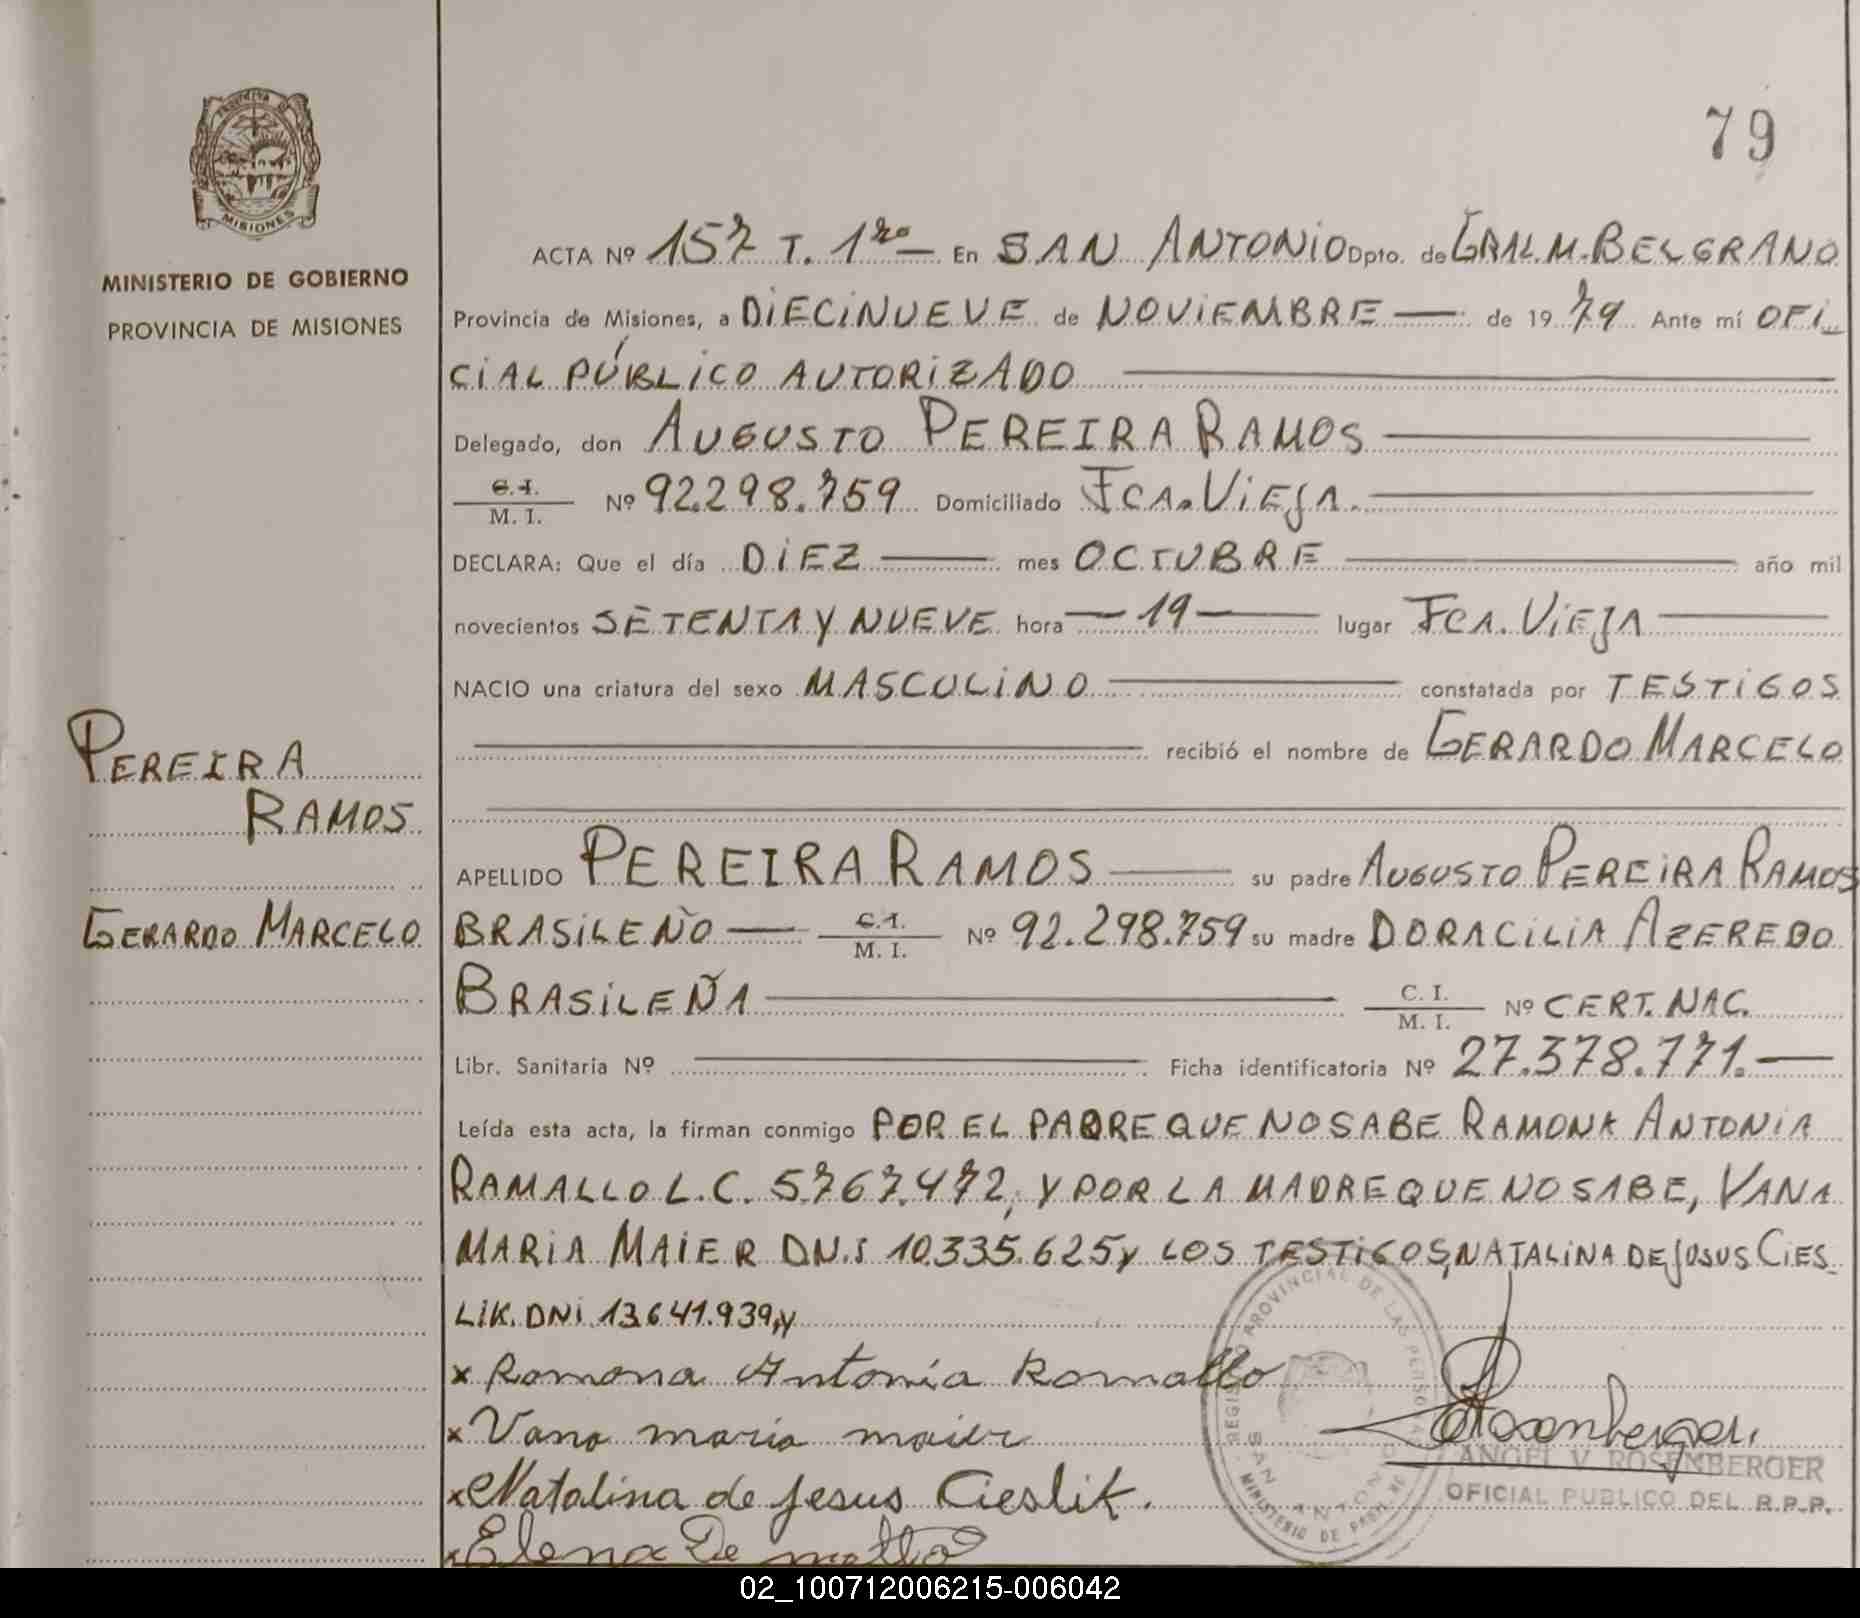 PROVINCIA DE
MISIONES
MINISTERIO DE GOBIERNO
PROVINCIA DE MISIONES
PEREIRA
RAMOS
GERARDO MARCELO
79
ACTA Nº 157 T. 1ro — En SAN ANTONIO Dpto. de GRAL. M. BELGRANO
Provincia de Misiones, a DIECINUEVE de NOVIEMBRE — de 1979 Ante mí OFI-
CIAL PÚBLICO AUTORIZADO
Delegado, don AUGUSTO PEREIRA RAMOS
C.I. / M. I. Nº 92.298.759 Domiciliado FCA. VIEJA.
DECLARA: Que el día DIEZ — mes OCTUBRE — año mil
novecientos SETENTA Y NUEVE hora — 19 — lugar FCA. VIEJA
NACIO una criatura del sexo MASCULINO — constatada por TESTIGOS
— recibió el nombre de GERARDO MARCELO
APELLIDO PEREIRA RAMOS — su padre AUGUSTO PEREIRA RAMOS
BRASILEÑO — C.I. / M. I. Nº 92.298.759 su madre DORACILIA AZEREDO
BRASILEÑA — C. I. / M. I. Nº CERT. NAC.
Libr. Sanitaria Nº — Ficha identificatoria Nº 27.378.771. —
Leída esta acta, la firman conmigo POR EL PADRE QUE NO SABE RAMONA ANTONIA
RAMALLO L.C. 5.767.472, Y POR LA MADRE QUE NO SABE, VANA
MARIA MAIER DN.I 10.335.625 y LOS TESTIGOS, NATALINA DE JOSUS CIES-
LIK. DNI. 13.641.939, y
x Ramona Antonia Ramallo
x Vana maria maier
x Natalina de Jesus Cieslik.
x Elena De matto
REGISTRO PROVINCIAL DE LAS PERSONAS
SAN ANTONIO
MINISTERIO DE
Rosenberger
ANGEL V. ROSENBERGER
OFICIAL PUBLICO DEL R.P.P.
02_100712006215-006042